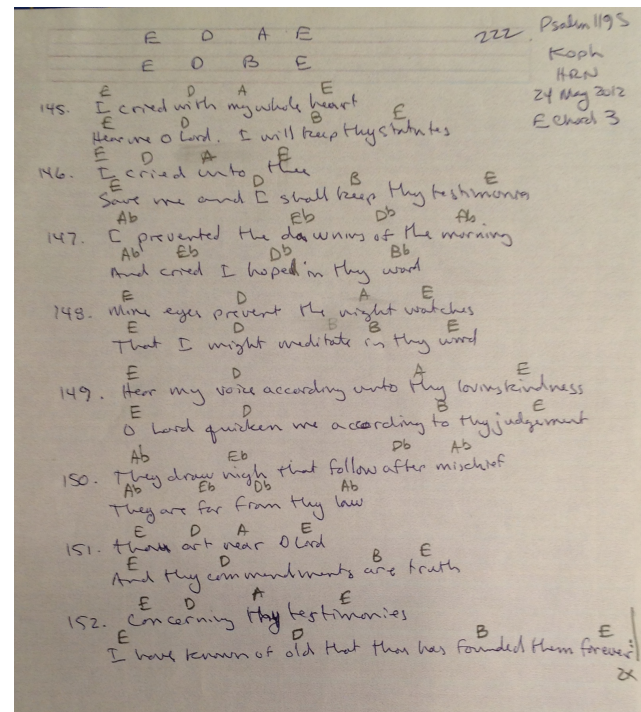 E D A E
222. Psalm 119 S
E D B E
Koph
HRN
24 May 2012
E chord 3
E D A E
145. I cried with my whole heart
E D B E
Hear me O Lord. I will keep thy statutes
E D A E
146. I cried unto thee
E D B E
Save me and I shall keep thy testimonies
Ab Eb Db Ab
147. I prevented the dawning of the morning
Ab Eb Db Bb
And cried I hoped in thy word
E D A E
148. Mine eyes prevent the night watches
E D B B E
That I might meditate in thy word
E D A E
149. Hear my voice according unto thy lovingkindness
E D B E
O Lord quicken me according to thy judgement
Ab Eb Db Ab
150. They draw nigh that follow after mischief
Ab Eb Db Ab
They are far from thy law
E D A E
151. thou art near O Lord
E D B E
And thy commendments are truth
E D A E
152. Concerning thy testimonies
E D B E
I have known of old that thou has founded them forever
2x